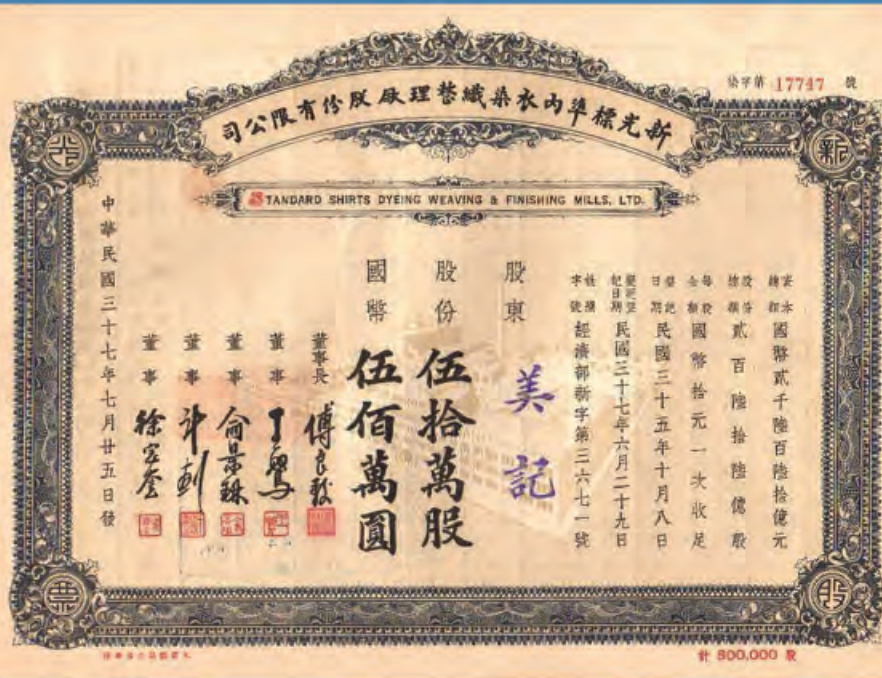 染字第 17747 號
新光標準內衣染織整理廠股份有限公司
新
光
STANDARD SHIRTS DYEING WEAVING & FINISHING MILLS, LTD.
資本總額 國幣貳千陸百陸拾億元
股份總額 貳百陸拾陸億股
每股金額 國幣拾元一次收足
登記日期 民國三十五年十月八日
變更登記日期 民國三十七年六月二十九日
執照字號 經濟部新字第三六七一號
股東 美記
股份 伍拾萬股
國幣 伍佰萬圓
董事長 傅良駿
董事
董事 俞景琳
董事
董事
中華民國三十七年七月廿五日發
股
票
計 500,000 股